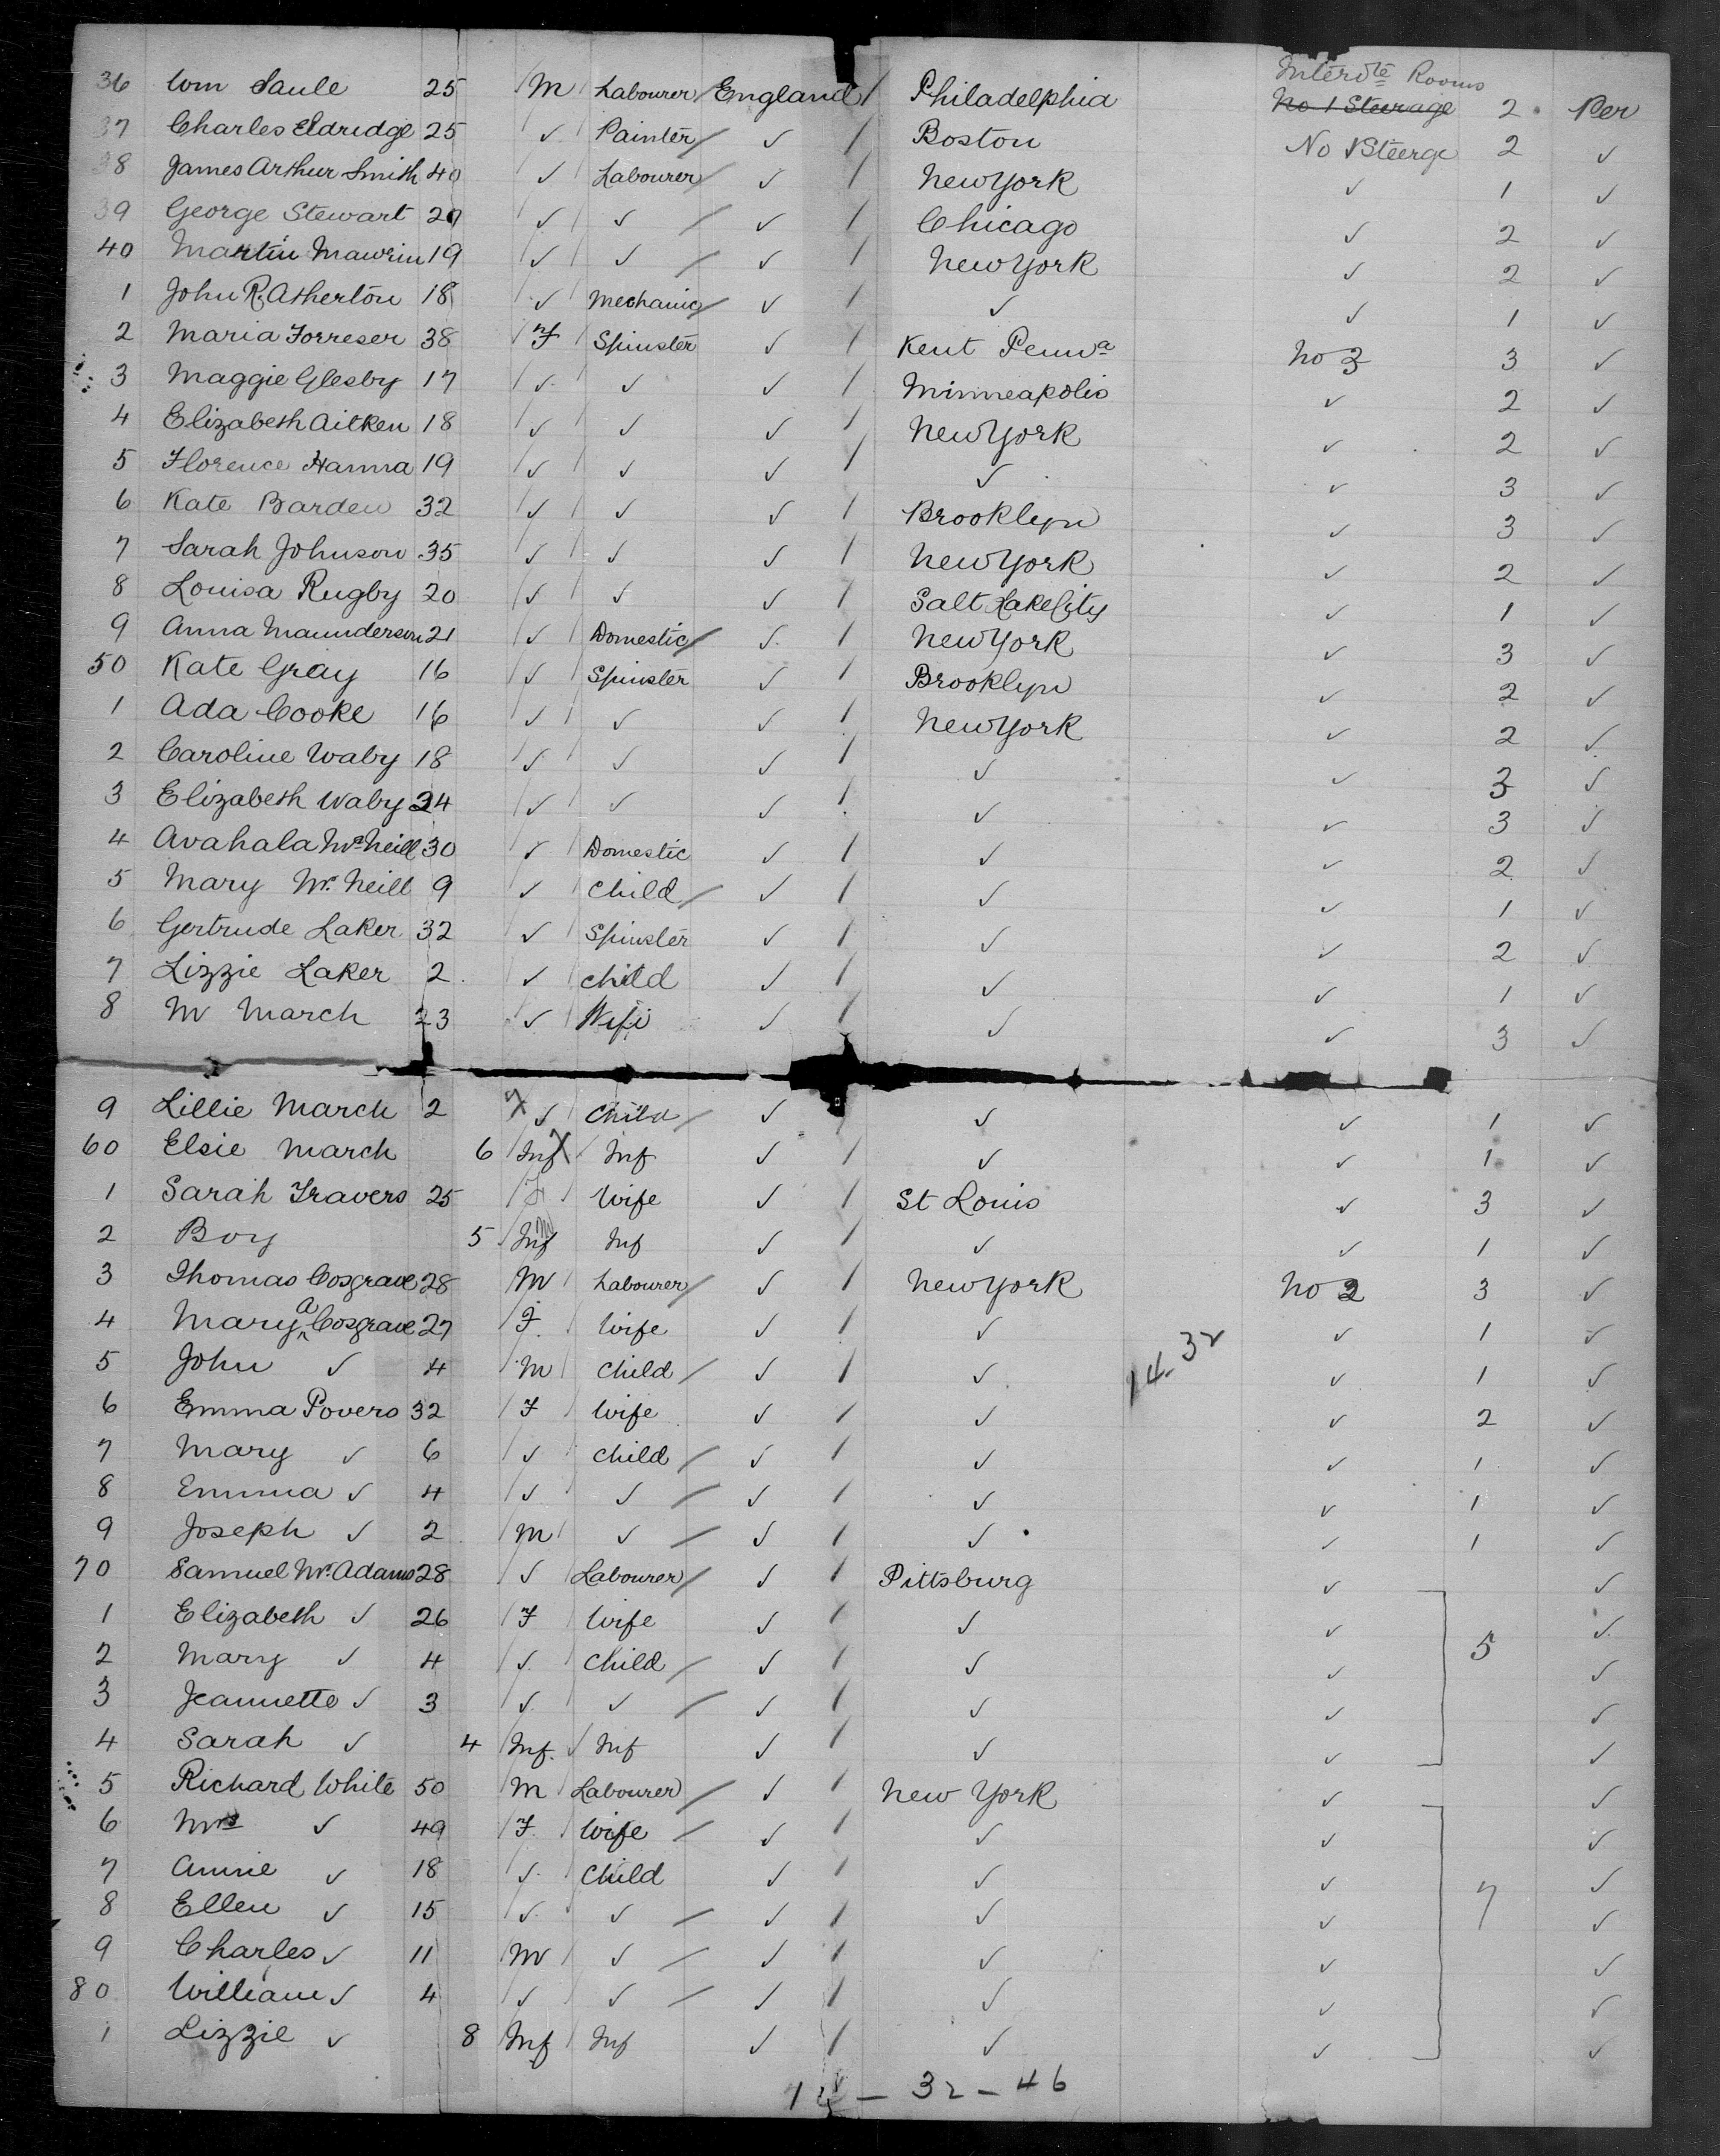 Interdte Rooms
36 Wm Saule 25 M Labourer England Philadelphia No 1 Steerage 2 Per
37 Charles Eldridge 25 ✓ Painter ✓ Boston No 1 Steerge 2 ✓
38 James Arthur Smith 40 ✓ Labourer ✓ New York ✓ 1 ✓
39 George Stewart ✓ ✓ ✓ Chicago ✓ 2 ✓
40 Martin Mawrin 19 ✓ ✓ ✓ New York ✓ 2 ✓
1 John R. Atherton 18 ✓ Mechanic ✓ ✓ ✓ 1 ✓
2 Maria Forreser 38 F Spinster ✓ Kent Penna No 3 3 ✓
3 Maggie Glesby 17 ✓ ✓ ✓ Minneapolis ✓ 2 ✓
4 Elizabeth Aitken 18 ✓ ✓ ✓ New York ✓ 2 ✓
5 Florence Hanna 19 ✓ ✓ ✓ ✓ ✓ 3 ✓
6 Kate Barden 32 ✓ ✓ ✓ Brooklyn ✓ 3 ✓
7 Sarah Johnson 35 ✓ ✓ ✓ New York ✓ 2 ✓
8 Louisa Rugby 20 ✓ ✓ ✓ Salt Lake City ✓ 1 ✓
9 Anna Maunderson 21 ✓ Domestic ✓ New York ✓ 3 ✓
50 Kate Gray 16 ✓ Spinster ✓ Brooklyn ✓ 2 ✓
1 Ada Cooke 16 ✓ ✓ ✓ New York ✓ 2 ✓
2 Caroline Waby 18 ✓ ✓ ✓ ✓ ✓ 3 ✓
3 Elizabeth Waby 24 ✓ ✓ ✓ ✓ ✓ 3 ✓
4 Avahala McNeill 30 ✓ Domestic ✓ ✓ ✓ 2 ✓
5 Mary McNeill 9 ✓ Child ✓ ✓ ✓ 1 ✓
6 Gertrude Laker 32 ✓ Spinster ✓ ✓ ✓ 2 ✓
7 Lizzie Laker 2 ✓ Child ✓ ✓ ✓ 1 ✓
8 M March 23 ✓ Wife ✓ ✓ ✓ 3 ✓
9 Lillie March 2 ✓ Child ✓ ✓ ✓ 1 ✓
60 Elsie March 6 Inf Inf ✓ ✓ ✓ 1 ✓
1 Sarah Travers 25 F Wife ✓ St Louis ✓ 3 ✓
2 Boy 5 Inf Inf ✓ ✓ ✓ 1 ✓
3 Thomas Cosgrave 28 M Labourer ✓ New York No 2 3 ✓
4 Mary A Cosgrave 27 F Wife ✓ ✓ ✓ 1 ✓
14-32
5 John ✓ 4 M Child ✓ ✓ ✓ 1 ✓
6 Emma Povers 32 F Wife ✓ ✓ ✓ 2 ✓
7 Mary ✓ 6 ✓ Child ✓ ✓ ✓ 1 ✓
8 Emma ✓ 4 ✓ ✓ ✓ ✓ ✓ 1 ✓
9 Joseph ✓ 2 M ✓ ✓ ✓ ✓ 1 ✓
70 Samuel McAdams 28 ✓ Labourer ✓ Pittsburg ✓ ✓
1 Elizabeth ✓ 26 F Wife ✓ ✓ ✓ ✓
2 Mary ✓ 4 ✓ Child ✓ ✓ ✓ 5 ✓
3 Jeannette ✓ 3 ✓ ✓ ✓ ✓ ✓ ✓
4 Sarah ✓ 4 Inf. ✓ Inf ✓ ✓ ✓ ✓
5 Richard White 50 M Labourer ✓ New York ✓ ✓
6 Mrs ✓ 49 F Wife ✓ ✓ ✓ ✓
7 Annie ✓ 18 ✓ Child ✓ ✓ ✓ ✓
8 Ellen ✓ 15 ✓ ✓ ✓ ✓ ✓ 7 ✓
9 Charles ✓ 11 M ✓ ✓ ✓ ✓ ✓
80 William ✓ 4 ✓ ✓ ✓ ✓ ✓ ✓
1 Lizzie ✓ 8 Inf Inf ✓ ✓ ✓ ✓
14 - 32 - 46